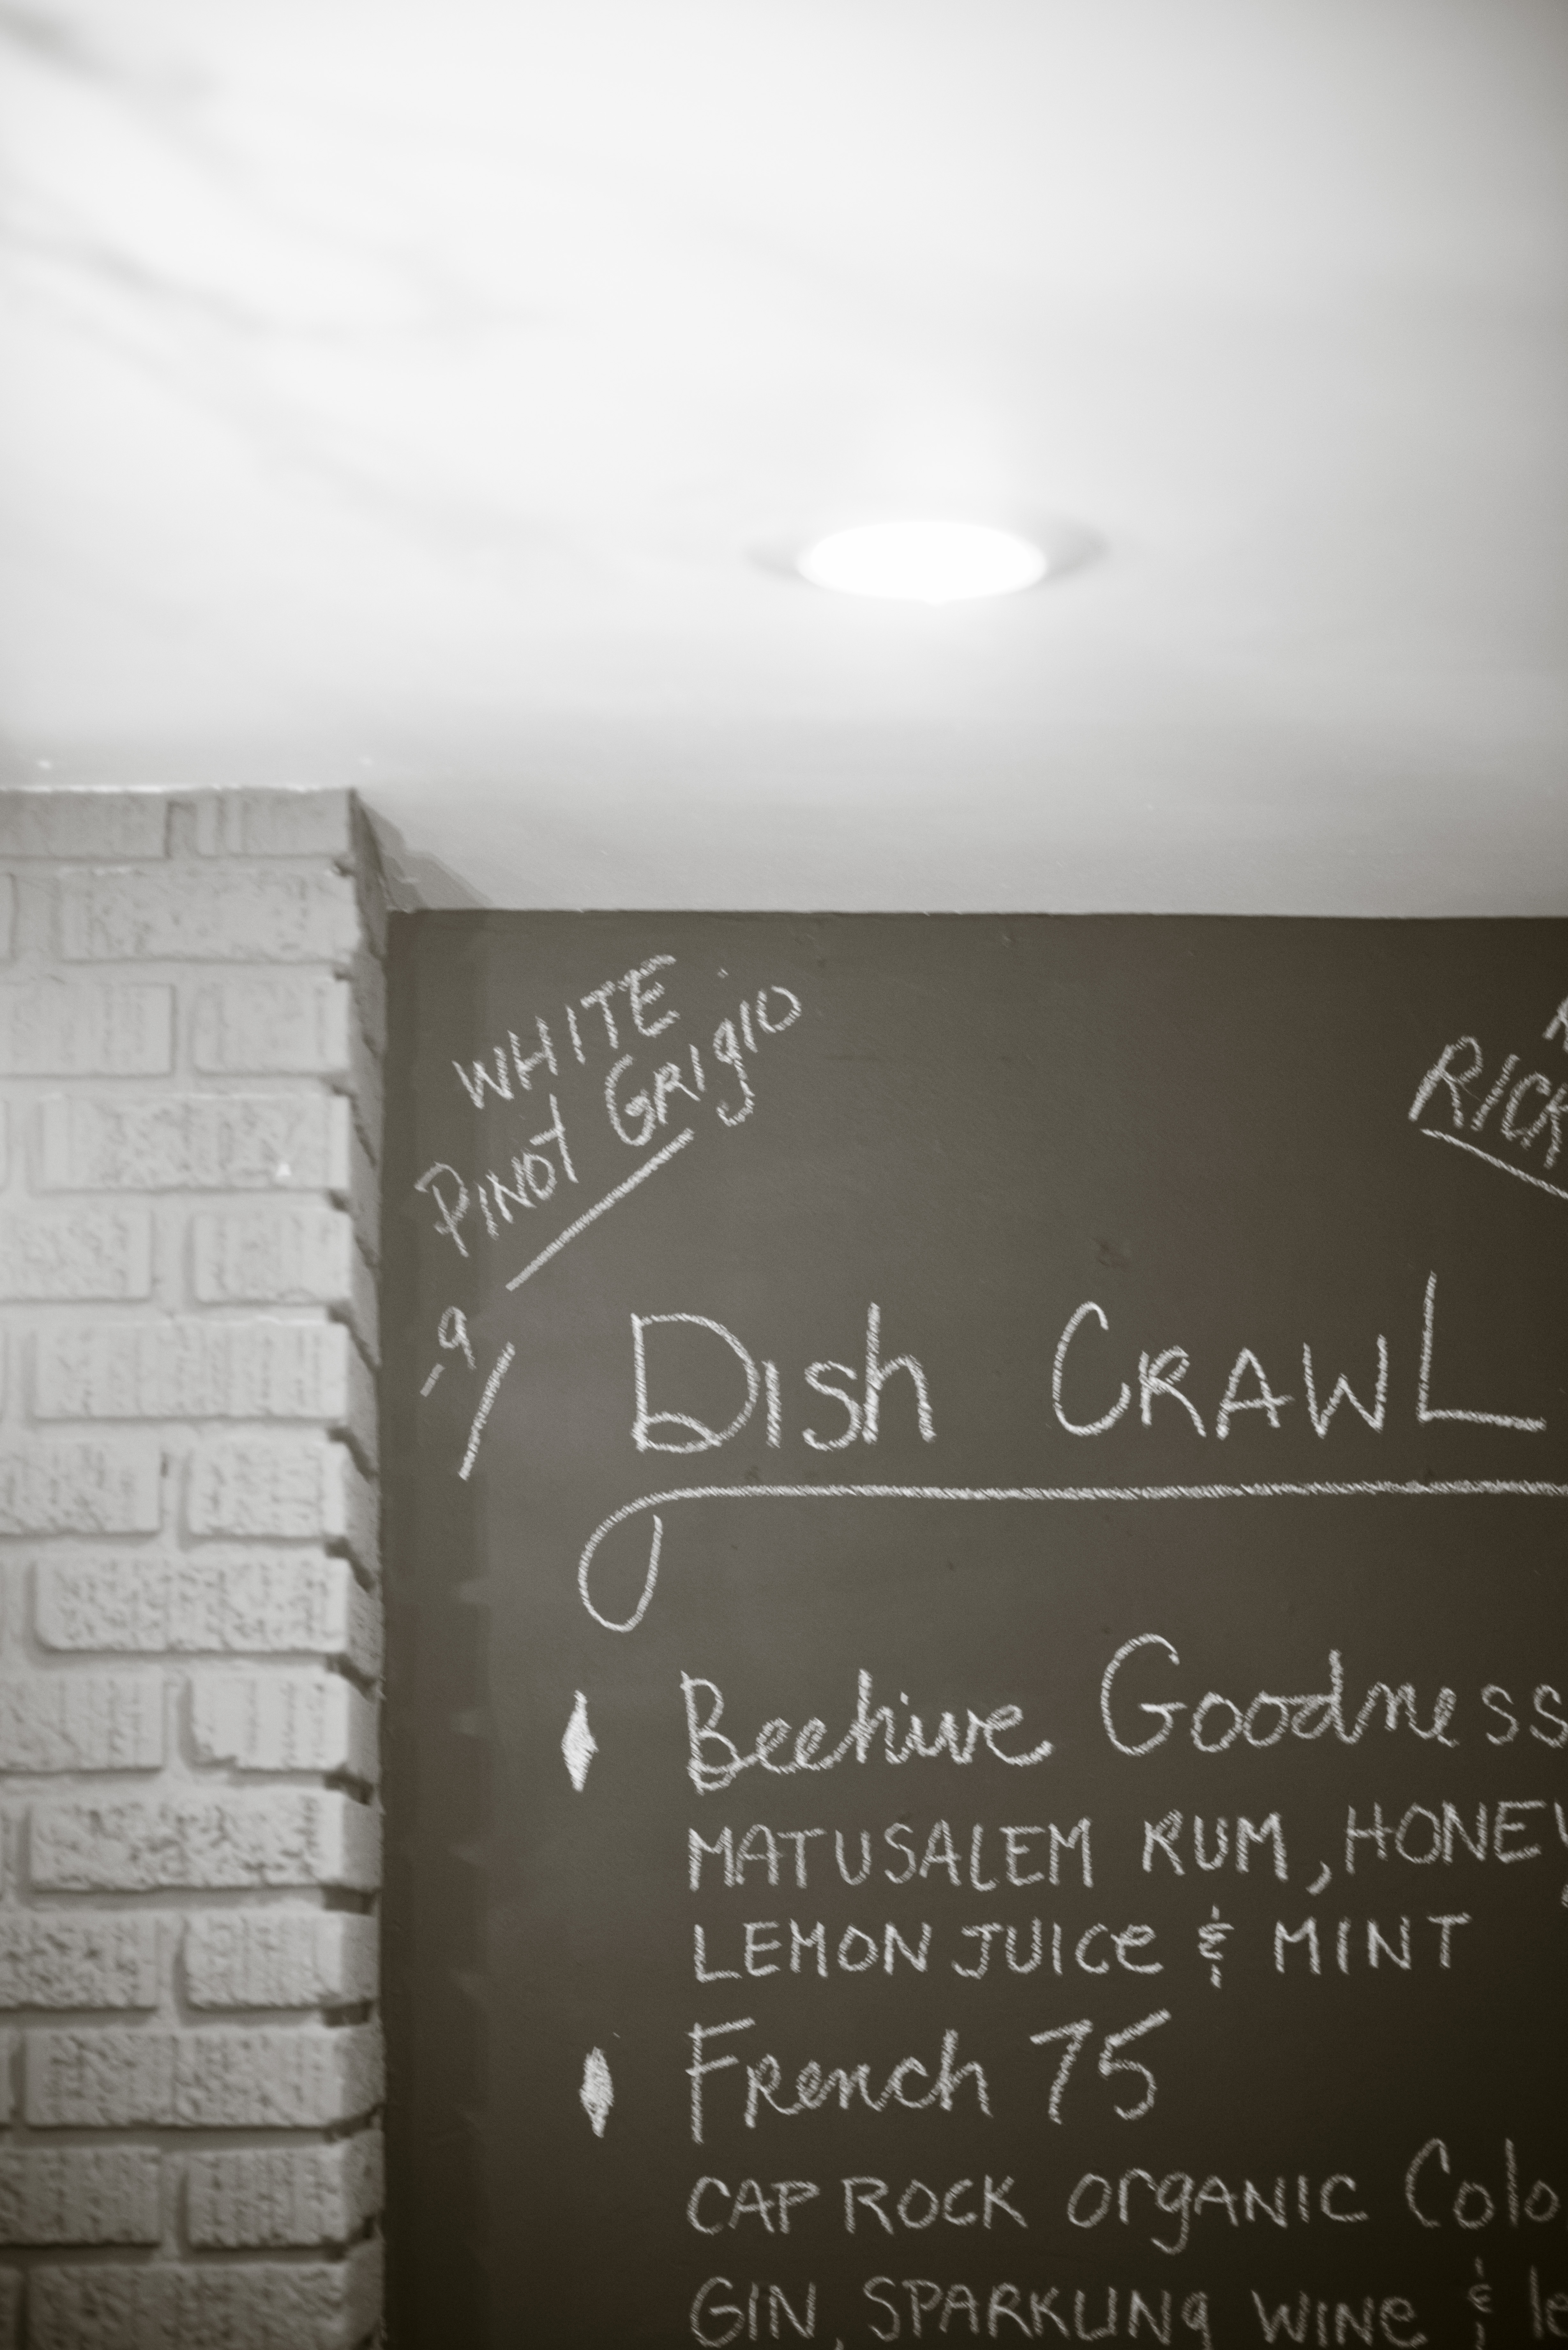 WHITE
Pinot Grigio
-9
RICK
Dish CRAWL
Beehive Goodness
MATUSALEM RUM, HONEY
LEMON JUICe & MINT
French 75
CAP ROCK OrgANIC Colo
GIN, SPARKLINg WINe & le